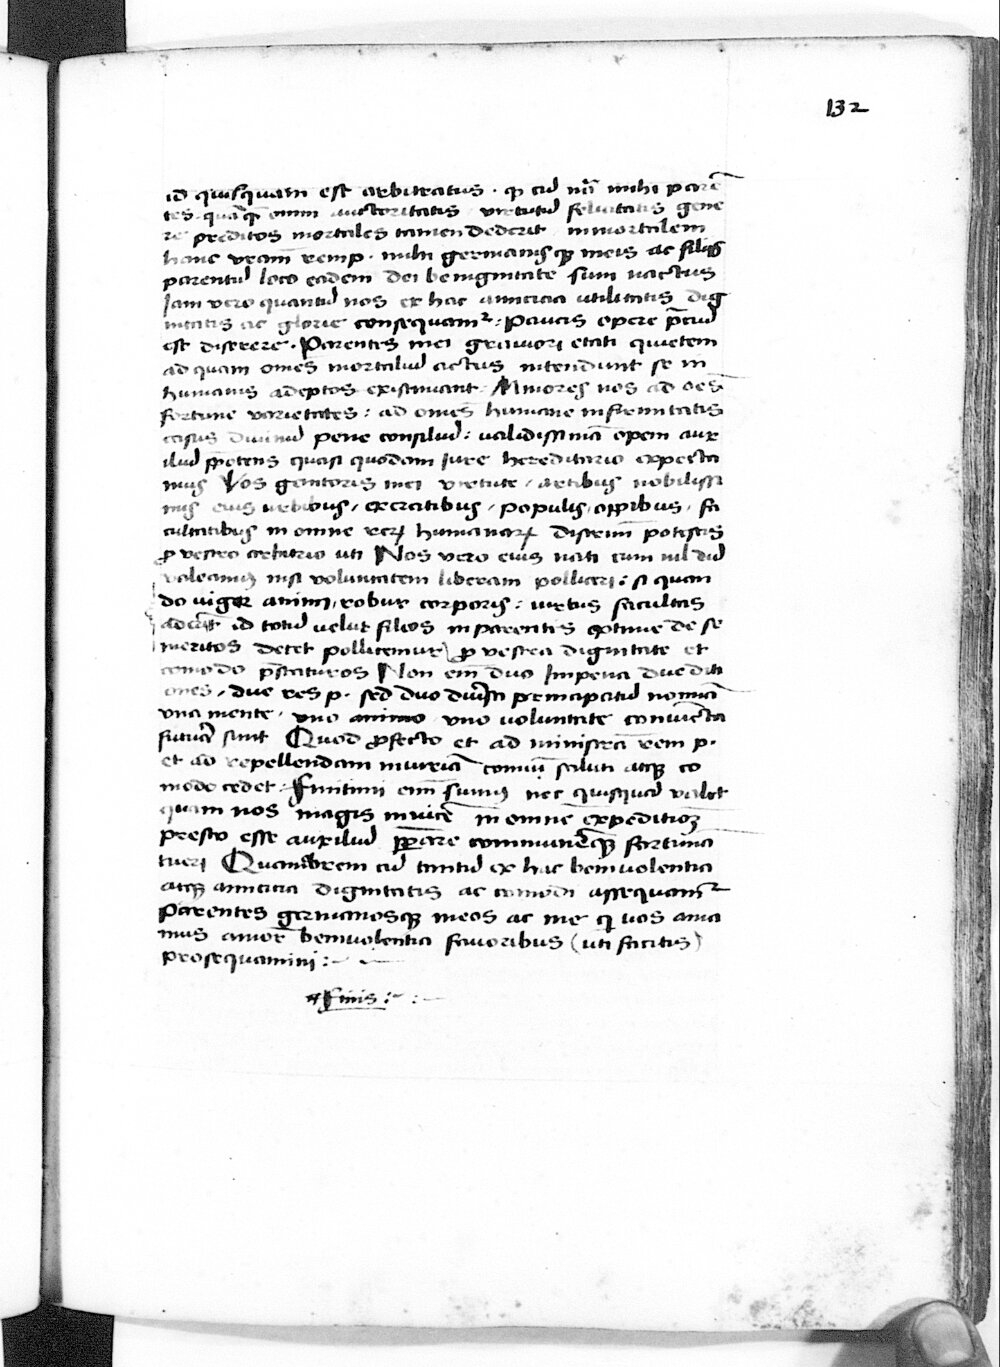 132
id quisquam est arbitratus · qp cū mī mihi parē
tes · quāq̄ omni auctoritatis virtutū felicitatis gene
re preditos mortales tamen dederit inmortalem
hanc vrām remp · mihi germanisq meis ac filijs
parentū loco eadem dei benignitate sim nactus
Iam vero quantū nos ex hac amicicia utilitatis dig
nitatis ac glorie consequamr : Paucis opere p̄ciū
est diserere · Parentes mei graviori etati quietem
ad quam omēs mortaliū actus intendunt se in
humanis adeptos existimant · Minores nos ad oēs
fortune varietates : ad omēs humane infirmitatis
casus divinū pene consiliū : validissimā opem aux
iliū p̄potens quasi quodam Iure hereditario expecta
mus Vos genitoris mei virtute / artibus nobilissi
mis eius urbibus / exercitibus / populis / opibus / fa
cultatibus in omne rerꝝ humanarꝝ discrim̄ potestis
ꝓ vestro arbitrio uti Nos vero eius nati cum nil diū
valeamus nisi voluntatem liberam polliceri : si quan
do viger animi / robur corporis : virtus facultas
aderit id totū velut filios in parentis optime de se
meritos decet pollicemur ꝓ vestra dignitate et
comodo p̄staturos Non em̄ duo Imperia due diti
ones / due res p · sed duo divisa principatū nomina
una mente · uno animo uno voluntate coniuncta
futura sunt Quod ꝓfecto et ad ministrā rem p ·
et ad repellendam iniuriā comūi saluti atq co
modo cedet : Finitimi em̄ sumus nec quisquā valet
quam nos magis invicē in omne expeditioꝫ
presto esse auxiliū p̄pare communēq fortunā
tueri Quamobrem cū tantū ex hac benivolentia
atq amicicia dignitatis ac comodi assequamr
Parentes germanosq meos ac me qi vos ama
mus amore benivolentia favoribus (uti facitis)
prosequamini :~
Finis :~